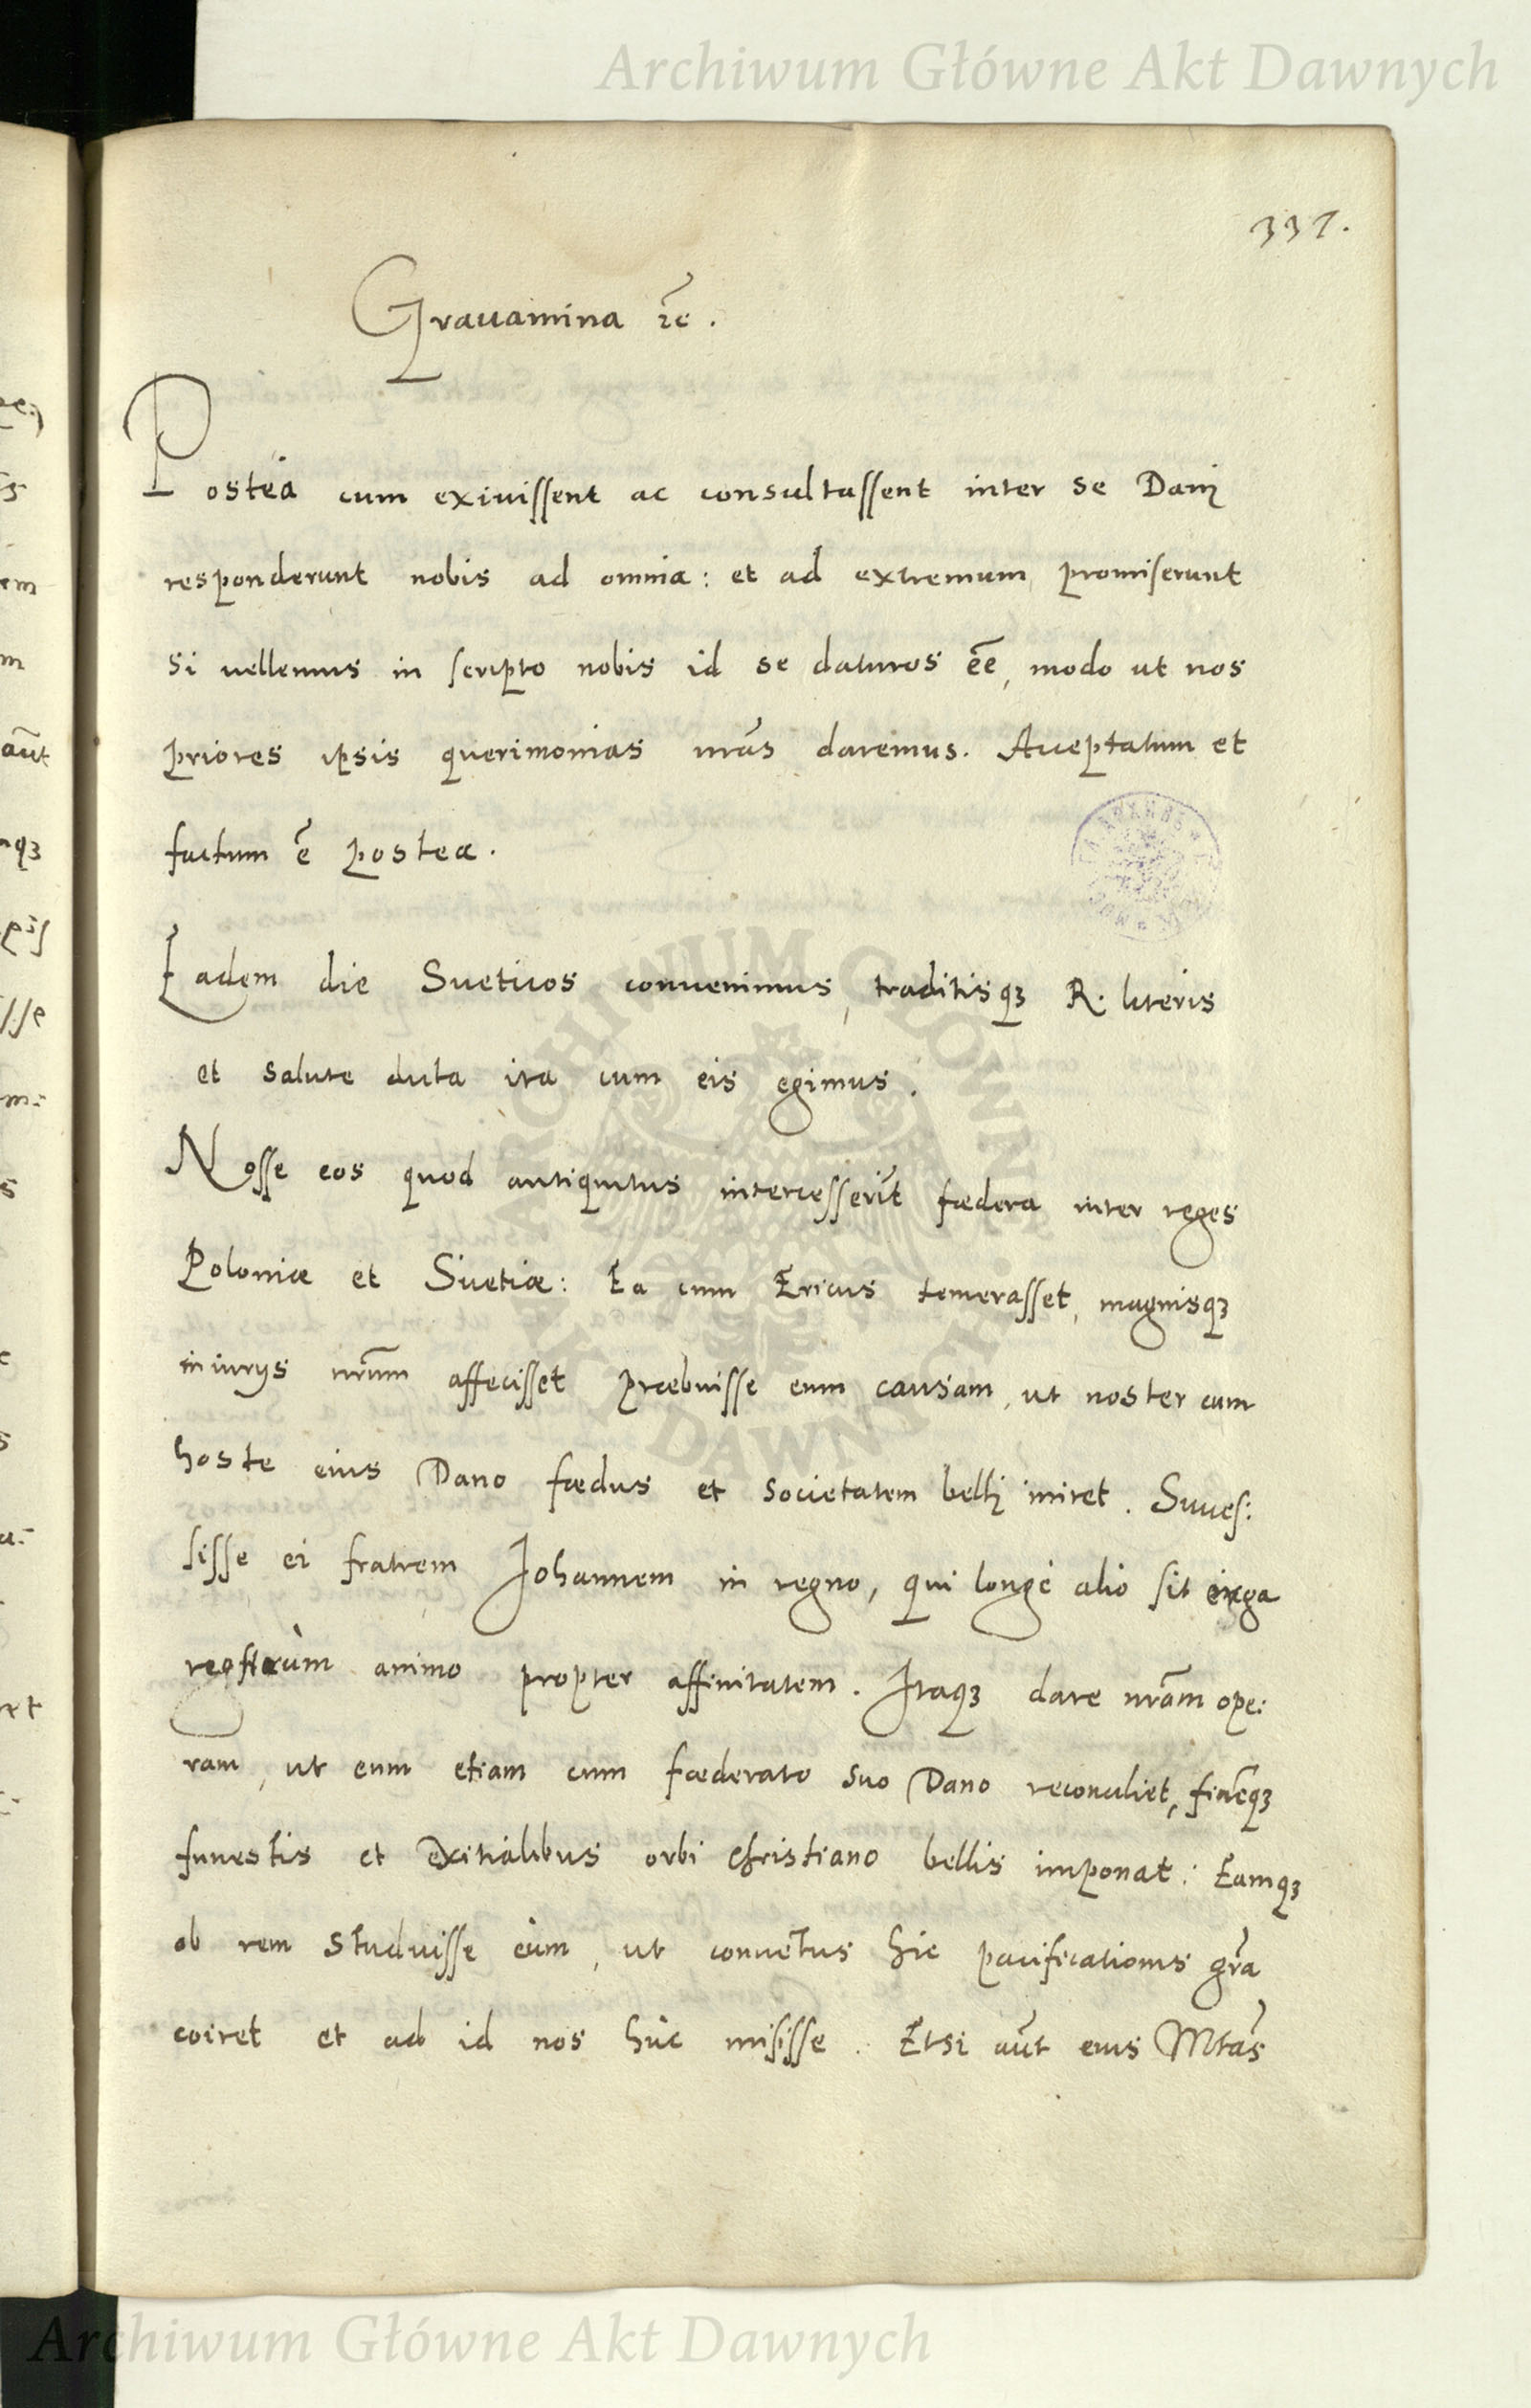 Archiwum Główne Akt Dawnych
337.
Grauamina rc̄.
Posteà cum exiuissent ac consultassent inter se Danij
responderunt nobis ad omnia: et ad extremum promiserunt
si uellemus in scripto nobis id se daturos eē͞, modo ut nos
priores ipsis querimonias nrãs daremus. Acceptatum et
factum ē postea.
Eadem die Sueticos conuenimus, traditisqꝫ R. literis
et salute dicta ita cum eis egimus.
Nosse eos quod antiquitus intercesserũt fœdera inter reges
Poloniæ et Suetiæ: Ea cum Ericus temerasset, magnisqꝫ
iniurijs nrũm affecisset præbuisse eum causam, ut noster cum
hoste eius Dano fœdus et societatem bellj iniret. Succes:
sisse ei fratrem Johannem in regno, qui longè alio sit erga
animo propter affinitatem. Itaqꝫ dare nrãm ope:
ram, ut eum etiam cum fœderato suo Dano reconciliet, finẽqꝫ
funestis et exitialibus orbi christiano bellis imponat: Eamqꝫ
ob rem studuisse eùm, ut conuẽtus hic pacificationis grã
coiret et ad id nos hùc misisse. Etsi aũt eius Mtãs
ARCHIWUM GŁÓWNE AKT DAWNYCH
Archiwum Główne Akt Dawnych